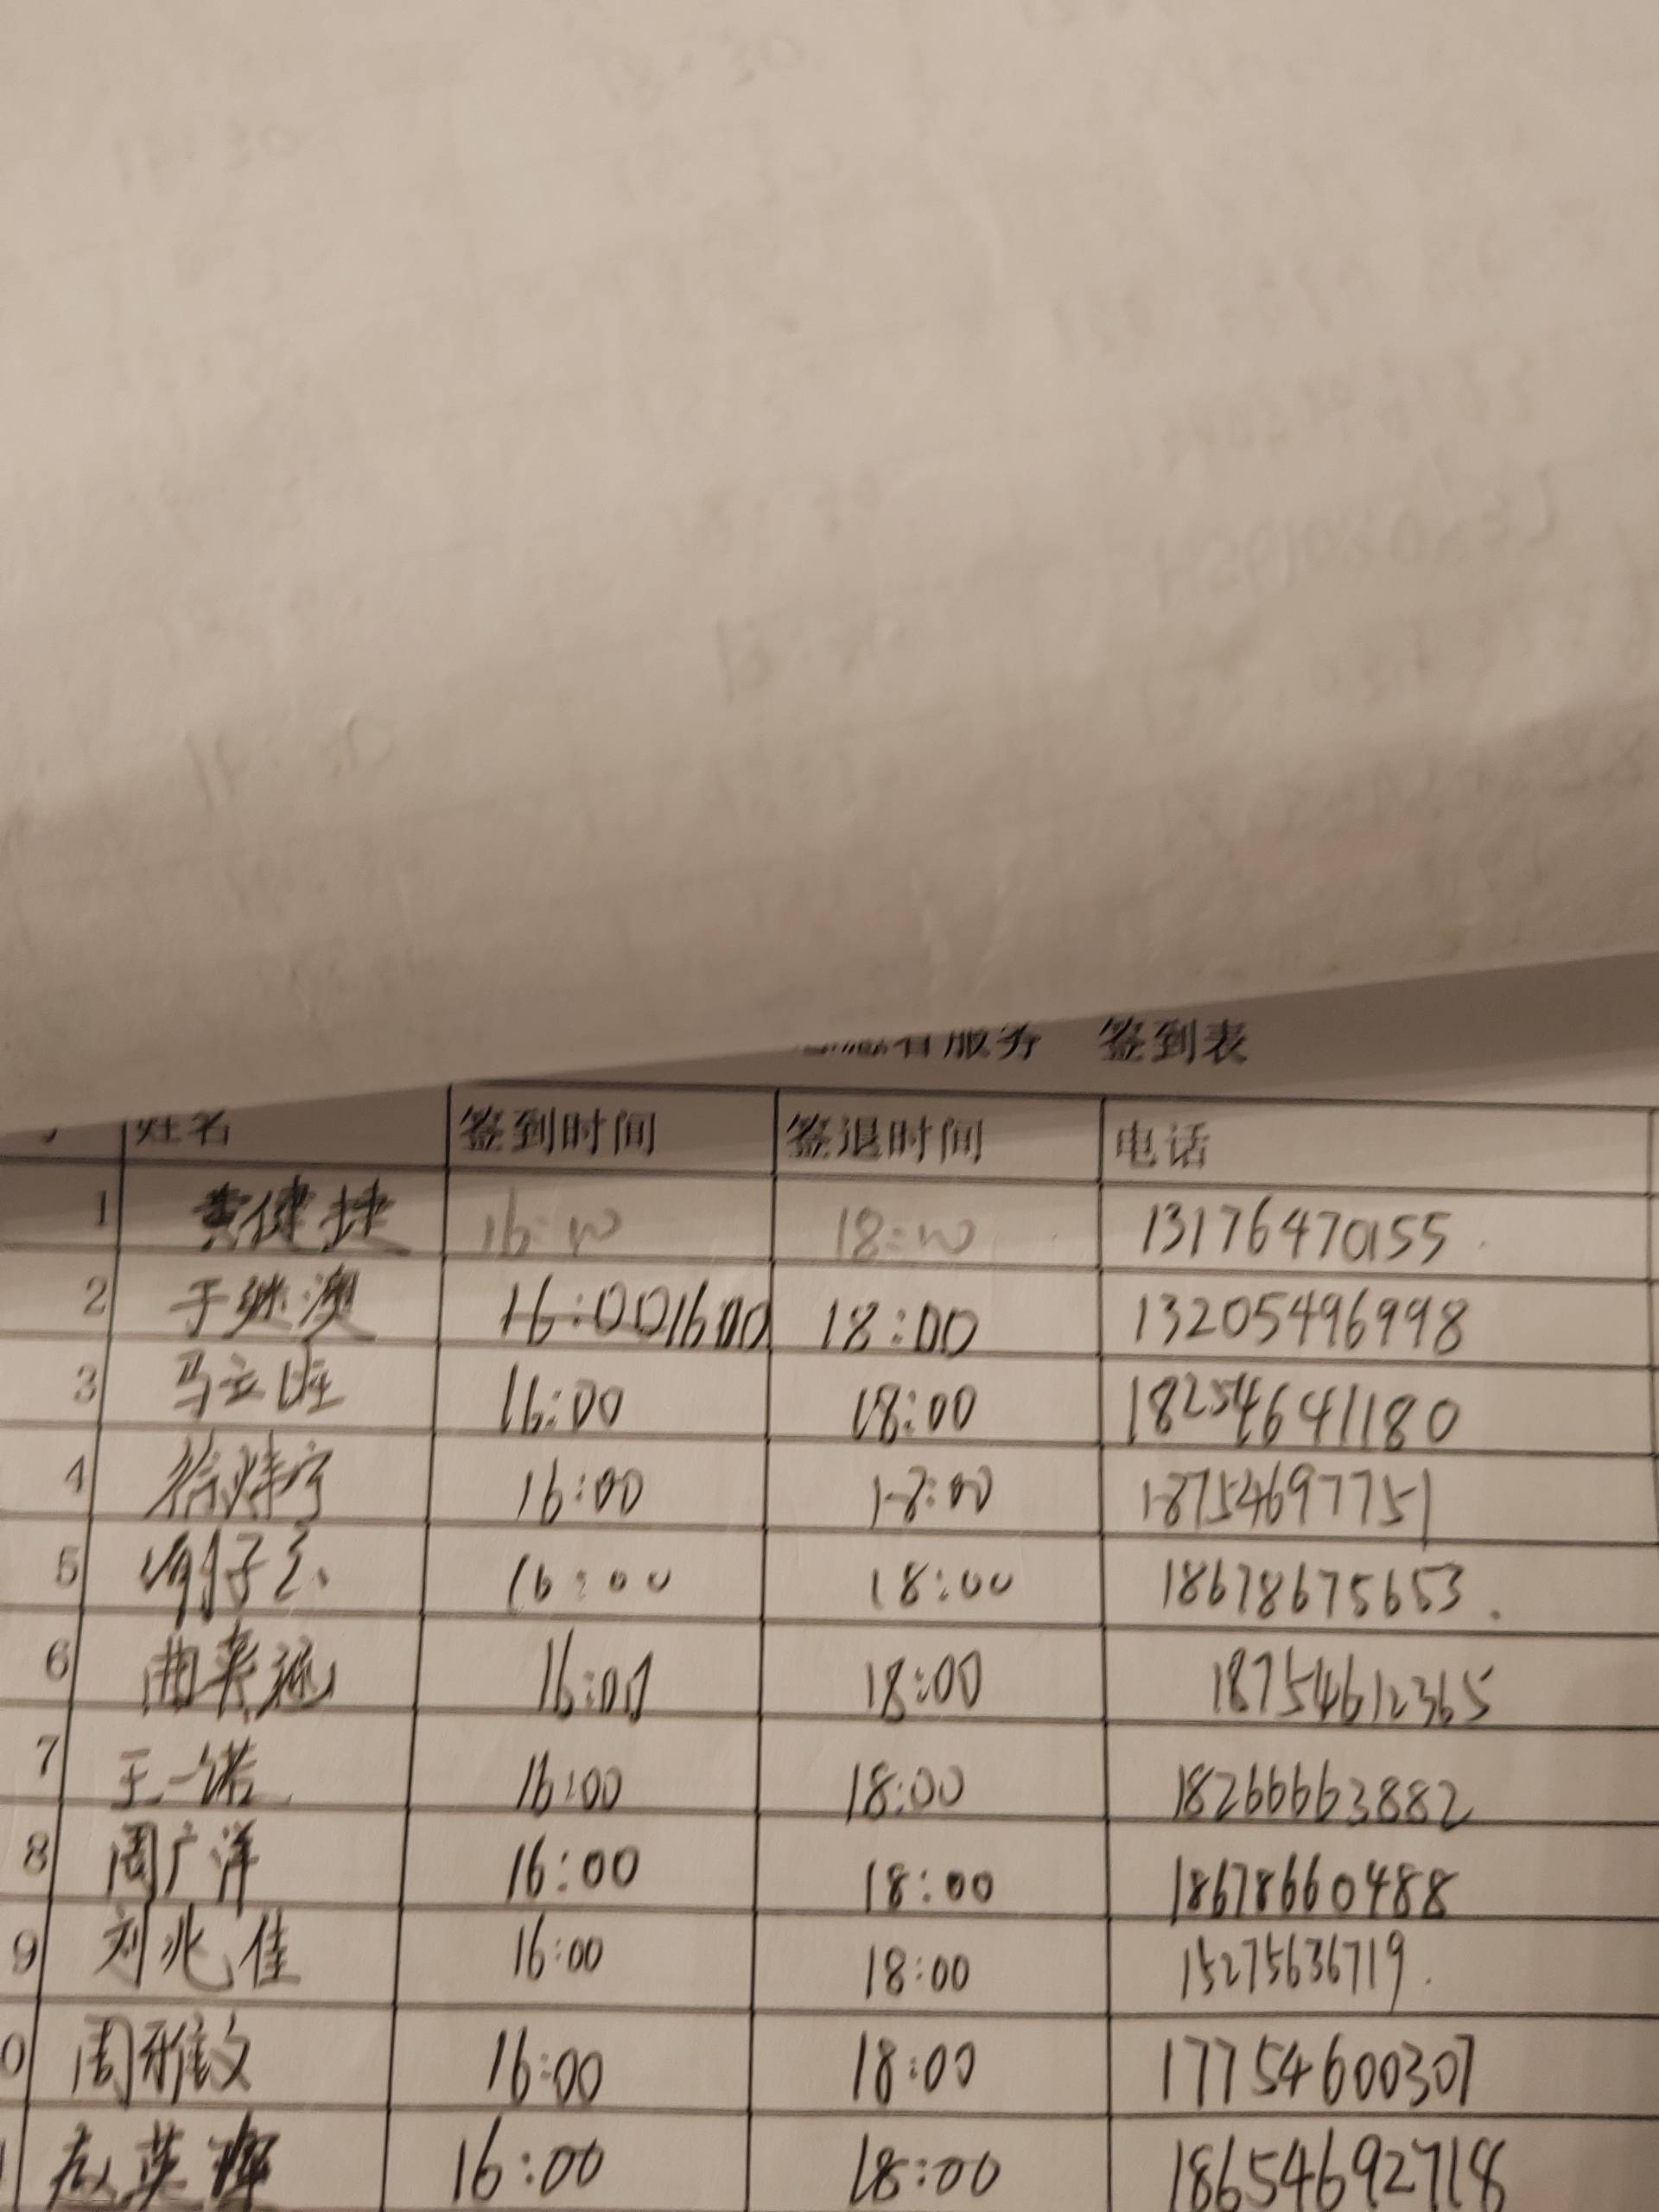 服务 签到表
姓名 签到时间 签退时间 电话
1 黄健捷 16:00 18:00 13176470155
2 于继澳 16:00 1600 18:00 13205496998
3 马立 16:00 18:00 18254641180
4 徐炜宁 16:00 18:00 18754697751
5 16:00 18:00 18678675653.
6 曲来涵 16:00 18:00 18754612365
7 王一诺 16:00 18:00 18266663882
8 周广洋 16:00 18:00 18678660488
9 刘兆佳 16:00 18:00 15275636719.
0 周雅文 16:00 18:00 17754600307
赵英 16:00 18:00 18654692718